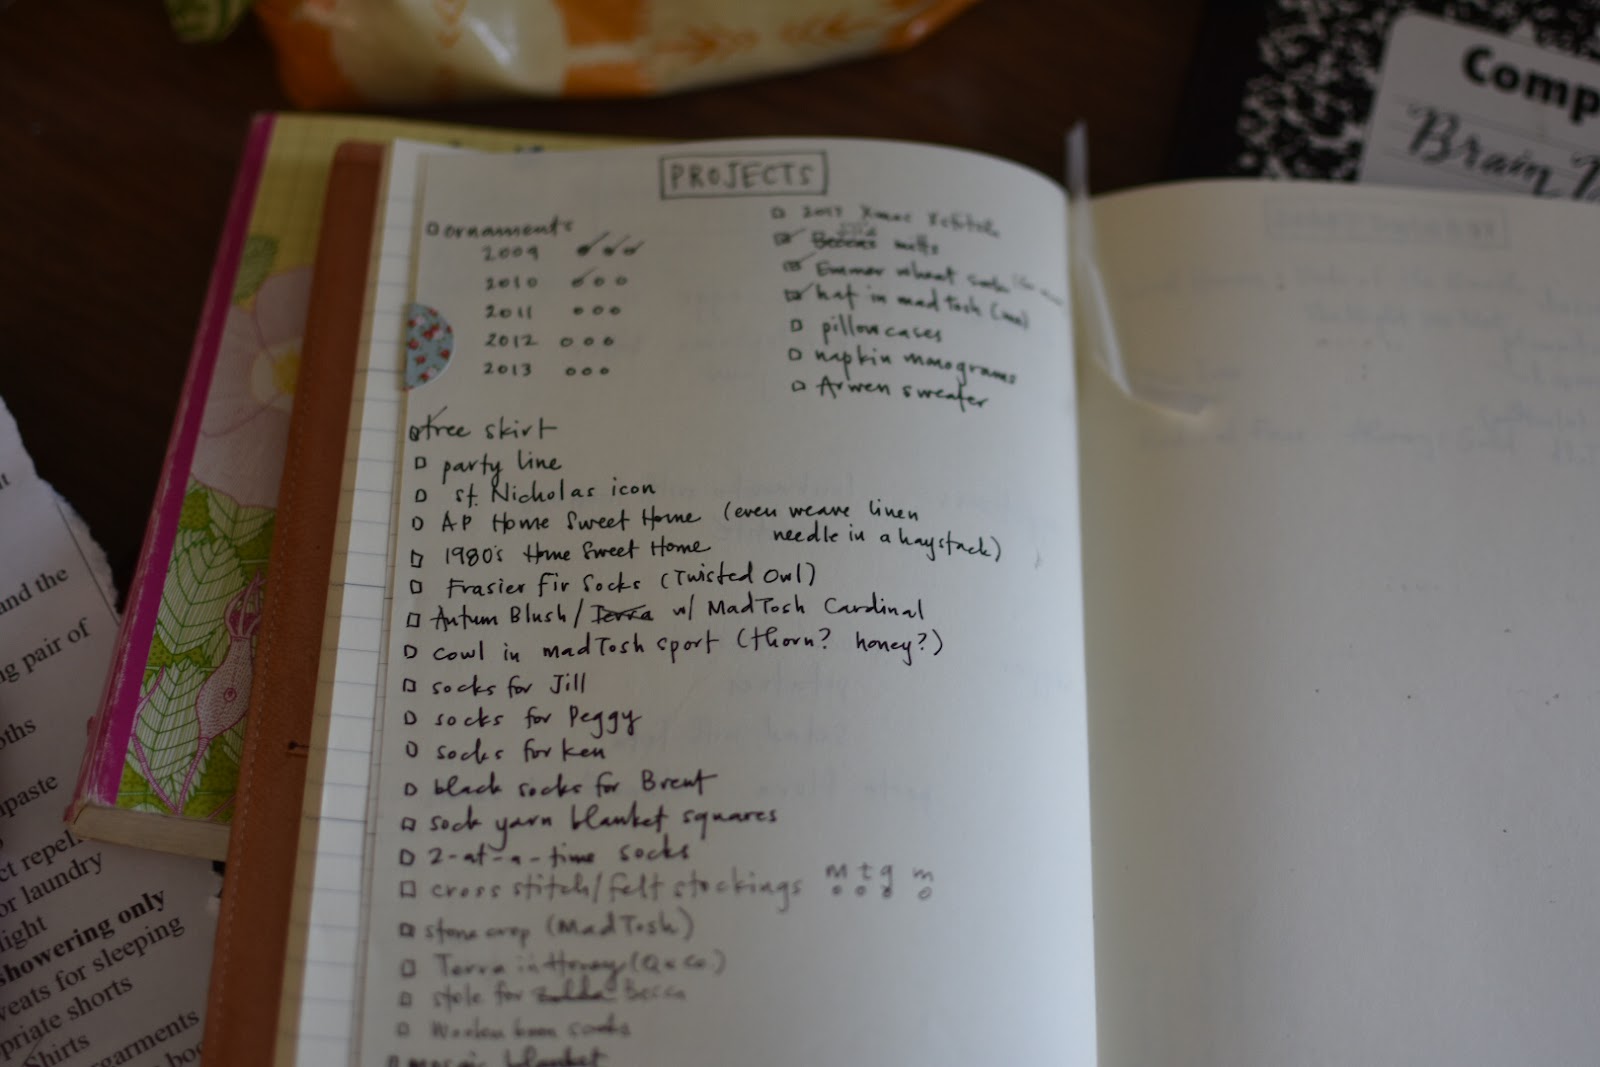 Comp
Brain
PROJECTS
ornaments
2009
2010
2011
2012
2013
2017 Xmas Xstitch
mitts
Emmer wheat
hat in madTosh (me)
pillowcases
napkin monograms
Arwen sweater
tree skirt
party line
St. Nicholas icon
AP Home Sweet Home (even weave linen
needle in a haystack)
1980's Home Sweet Home
Frasier Fir Socks (Twisted Owl)
Autum Blush / Terra w/ MadTosh Cardinal
cowl in madTosh sport (thorn? honey?)
socks for Jill
socks for Peggy
socks for Ken
black socks for Brent
sock yarn blanket squares
2-at-a-time socks
cross stitch/felt stockings m t g m
stone crop (MadTosh)
Terra in Honey (Q & Co.)
stole for Zelda Becca
mosaic blanket
and the
pair of
paste
or laundry
light
showering only
for sleeping
shorts
garments